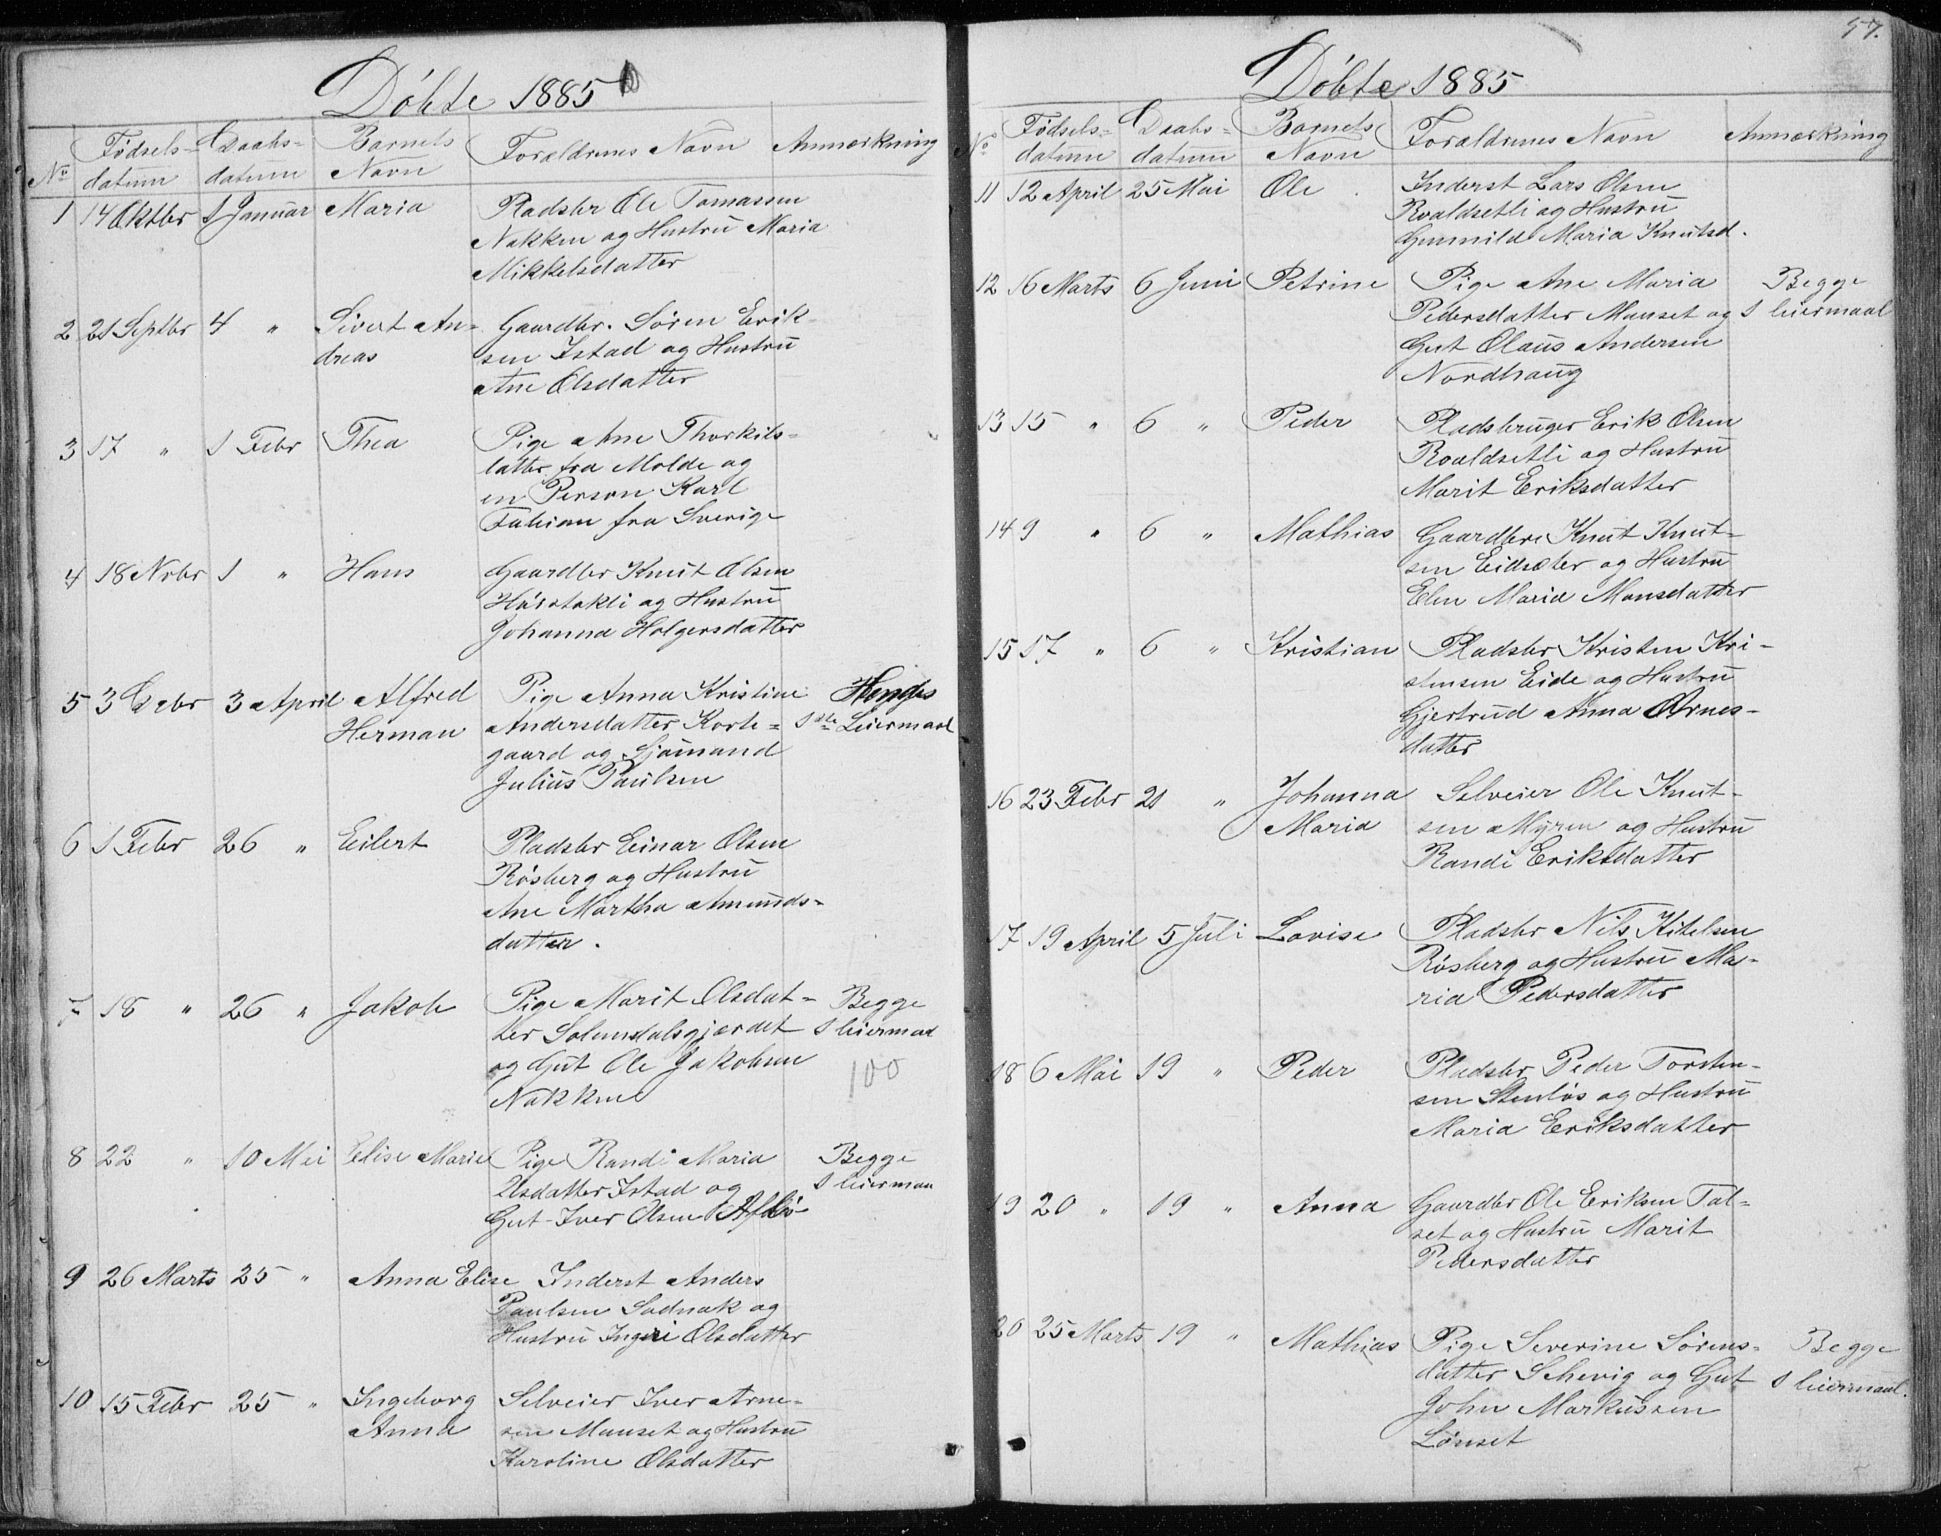 Döbte 1885
No Fødsels- Daabs- Barnets Forældrenes Navn Anmærkning
datum datum Navn
1 14 Oktbr 1 Januar Maria Pladsbr Ole Tomassen
Nakken og Hustru Maria
Mikkelsdatter
2 21 Septbr 4 " Sivert An- Gaardbr. Sören Erik-
dreas sen Istad og Hustru
Ane Olsdatter
3 17 " 1 Febr Thea Pige Ane Thorkils-
datter fra Molde og
en Person Karl
Fabian fra Sverige
4 18 Nvbr 1 " Hans Gaardbr Knut Olsen
og Hustru
Johanna Holgersdatter
5 3 Dcbr 3 April Alfred Pige Anna Kristine Hendes
Herman Andersdatter Korte- 1ste Leiermaal
gaard og Sjömand
Julius Paulsen
6 1 Febr 26 " Eilert Pladsbr Einar Olsen
Rösberg og Hustru
Ane Martha Amunds-
datter.
7 18 " 26 " Jakob Pige Marit Olsdat- Begge
ter Solemdalsgjærdet 1 leiermaal
og Gut Ole Jakobsen 100
Nakken
8 22 " 10 Mai Elise Marie Pige Randi Maria Begge
Olsdatter Istad og 1 leiermaa
Gut Iver Olsen
9 26 Marts 25 " Anna Elise Inderst Anders
Paulsen og
Hustru Ingeri Olsdatter
10 15 Febr 25 " Ingeborg Selveier Iver Arne-
Anna sen Mauset og Hustru
Karoline Olsdatter
57.
Döbte 1885
No Fødsels- Daabs- Barnets Forældrenes Navn Anmærkning
datum datum Navn
11 12 April 25 Mai Ole Inderst Lars Olsen
Roaldsetli og Hustru
Gunnild Maria Knutsd.
12 16 Marts 6 Juni Petrine Pige Ane Maria Begge
Pedersdatter Mauset og 1 leiermaal
Gut Olaus Andersen
Nordhaug
13 15 " 6 " Peder Pladsbruger Erik Olsen
Roaldsetli og Hustru
Marit Eriksdatter
14 9 " 6 " Mathias Gaardbr Knut Knut-
sen Eidsæter og Hustru
Elen Maria Monsdatter
15 17 " 6 " Kristian Pladsbr Kristen Kri-
stensen Eide og Hustru
Gjertrud Anna Arnes-
datter
16 23 Febr 21 " Johanna Selveier Ole Knut-
Maria sen Myren og Hustru
Randi Eriksdatter
17 19 April 5 Juli Lovise Pladsbr Nils Kitelsen
Rösberg og Hustru Ma-
ria Pedersdatter
18 6 Mai 19 " Peder Pladsbr Peder Torsten-
sen Stenlös og Hustru
Maria Eriksdatter
19 20 " 19 " Anna Gaardbr Ole Eriksen Tal-
set og Hustru Marit
Pedersdatter
20 25 Marts 19 " Mathias Pige Severine Sörens- Begge
datter og Gut 1 leiermaal.
John Markussen
Lönset